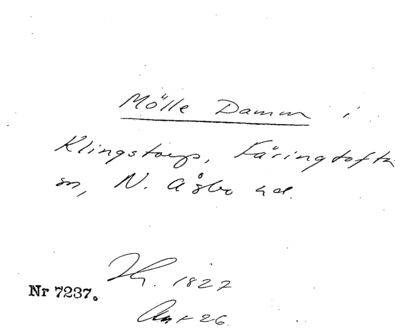 Mölle Damm i
Klingstorp, Färingtofta
sn, N. Åsbo hd.
Nr 7237.
1827
26